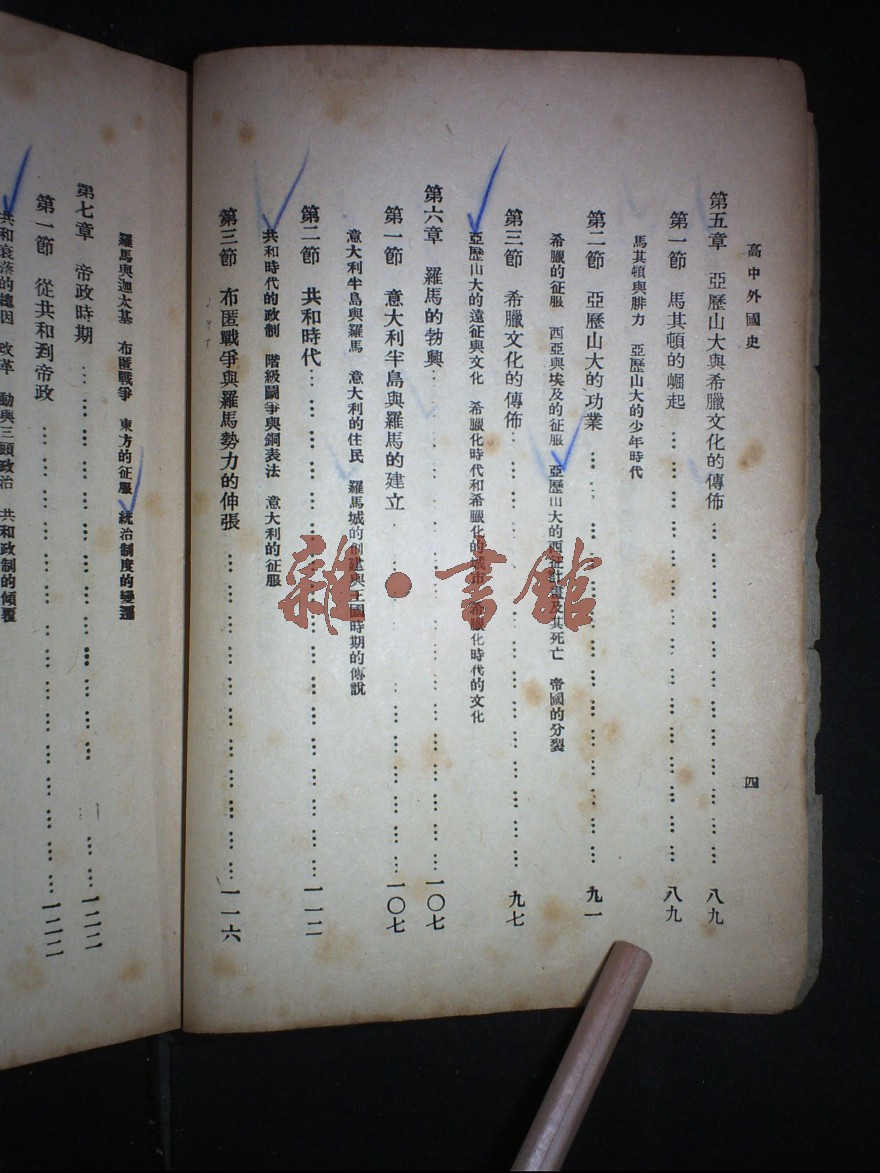 高中外國史 四
第五章 亞歷山大與希臘文化的傳佈 八九
第一節 馬其頓的崛起 八九
馬其頓與腓力 亞歷山大的少年時代
第二節 亞歷山大的功業 九一
希臘的征服 西亞與埃及的征服 亞歷山大的西征計畫及其死亡 帝國的分裂
第三節 希臘文化的傳佈 九七
亞歷山大的遠征與文化 希臘化時代和希臘化的城市 希臘化時代的文化
第六章 羅馬的勃興 一〇七
第一節 意大利半島與羅馬的建立 一〇七
意大利半島與羅馬 意大利的住民 羅馬城的創建與王國時期的傳說
第二節 共和時代 一一二
共和時代的政制 階級鬭爭與銅表法 意大利的征服
第三節 布匿戰爭與羅馬勢力的伸張 一一六
羅馬與迦太基 布匿戰爭 東方的征服 統治制度的變遷
第七章 帝政時期 一二二
第一節 從共和到帝政 一二二
共和衰落的總因 改革 動與三頭政治 共和政制的傾覆
雜·書館